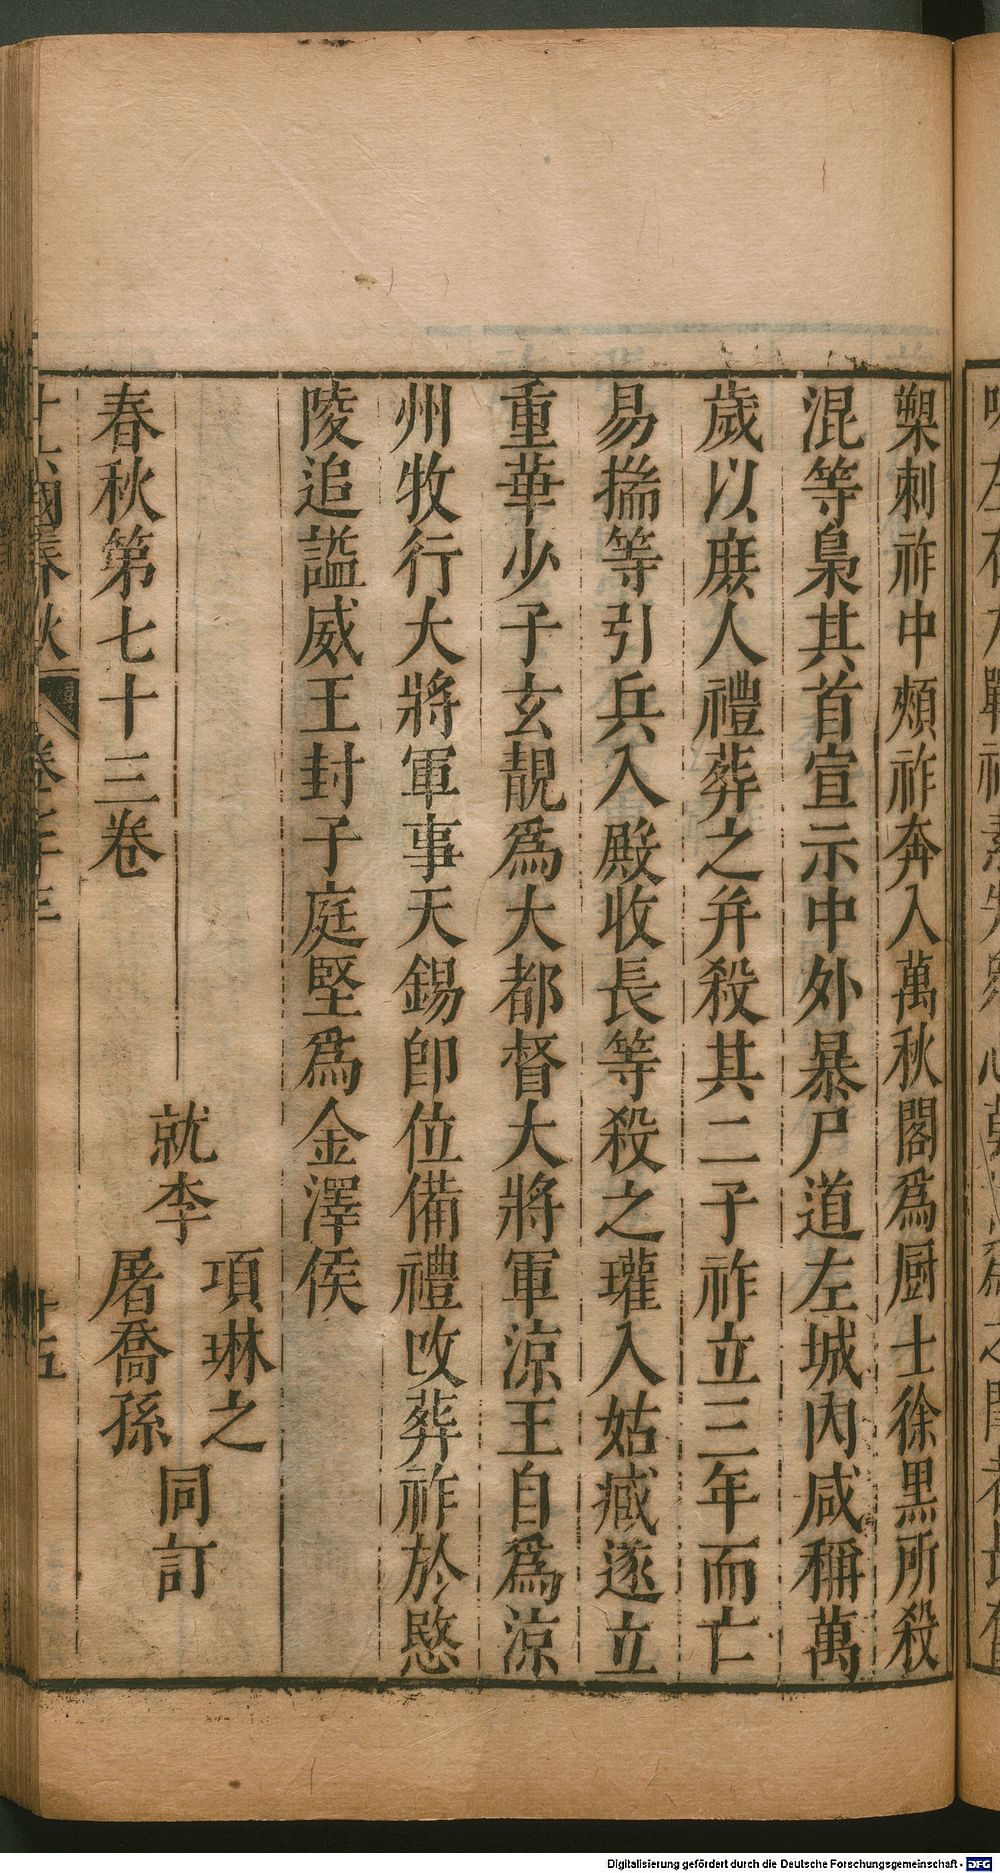 槊刺祚中頰祚奔入萬秋閣爲厨士徐黑所殺
混等梟其首宣示中外暴尸道左城内咸稱萬
歲以庶人禮葬之并殺其二子祚立三年而亡
易揣等引兵入殿收長等殺之瓘入姑臧遂立
重華少子玄靚爲大都督大將軍涼王自爲涼
州牧行大將軍事天錫卽位備禮改葬祚於愍
陵追謚威王封子庭堅爲金澤侯
就李
項琳之
屠喬孫
同訂
春秋第七十三卷
十六國春秋
卷七十三
十五
Digitalisierung gefördert durch die Deutsche Forschungsgemeinschaft - DFG